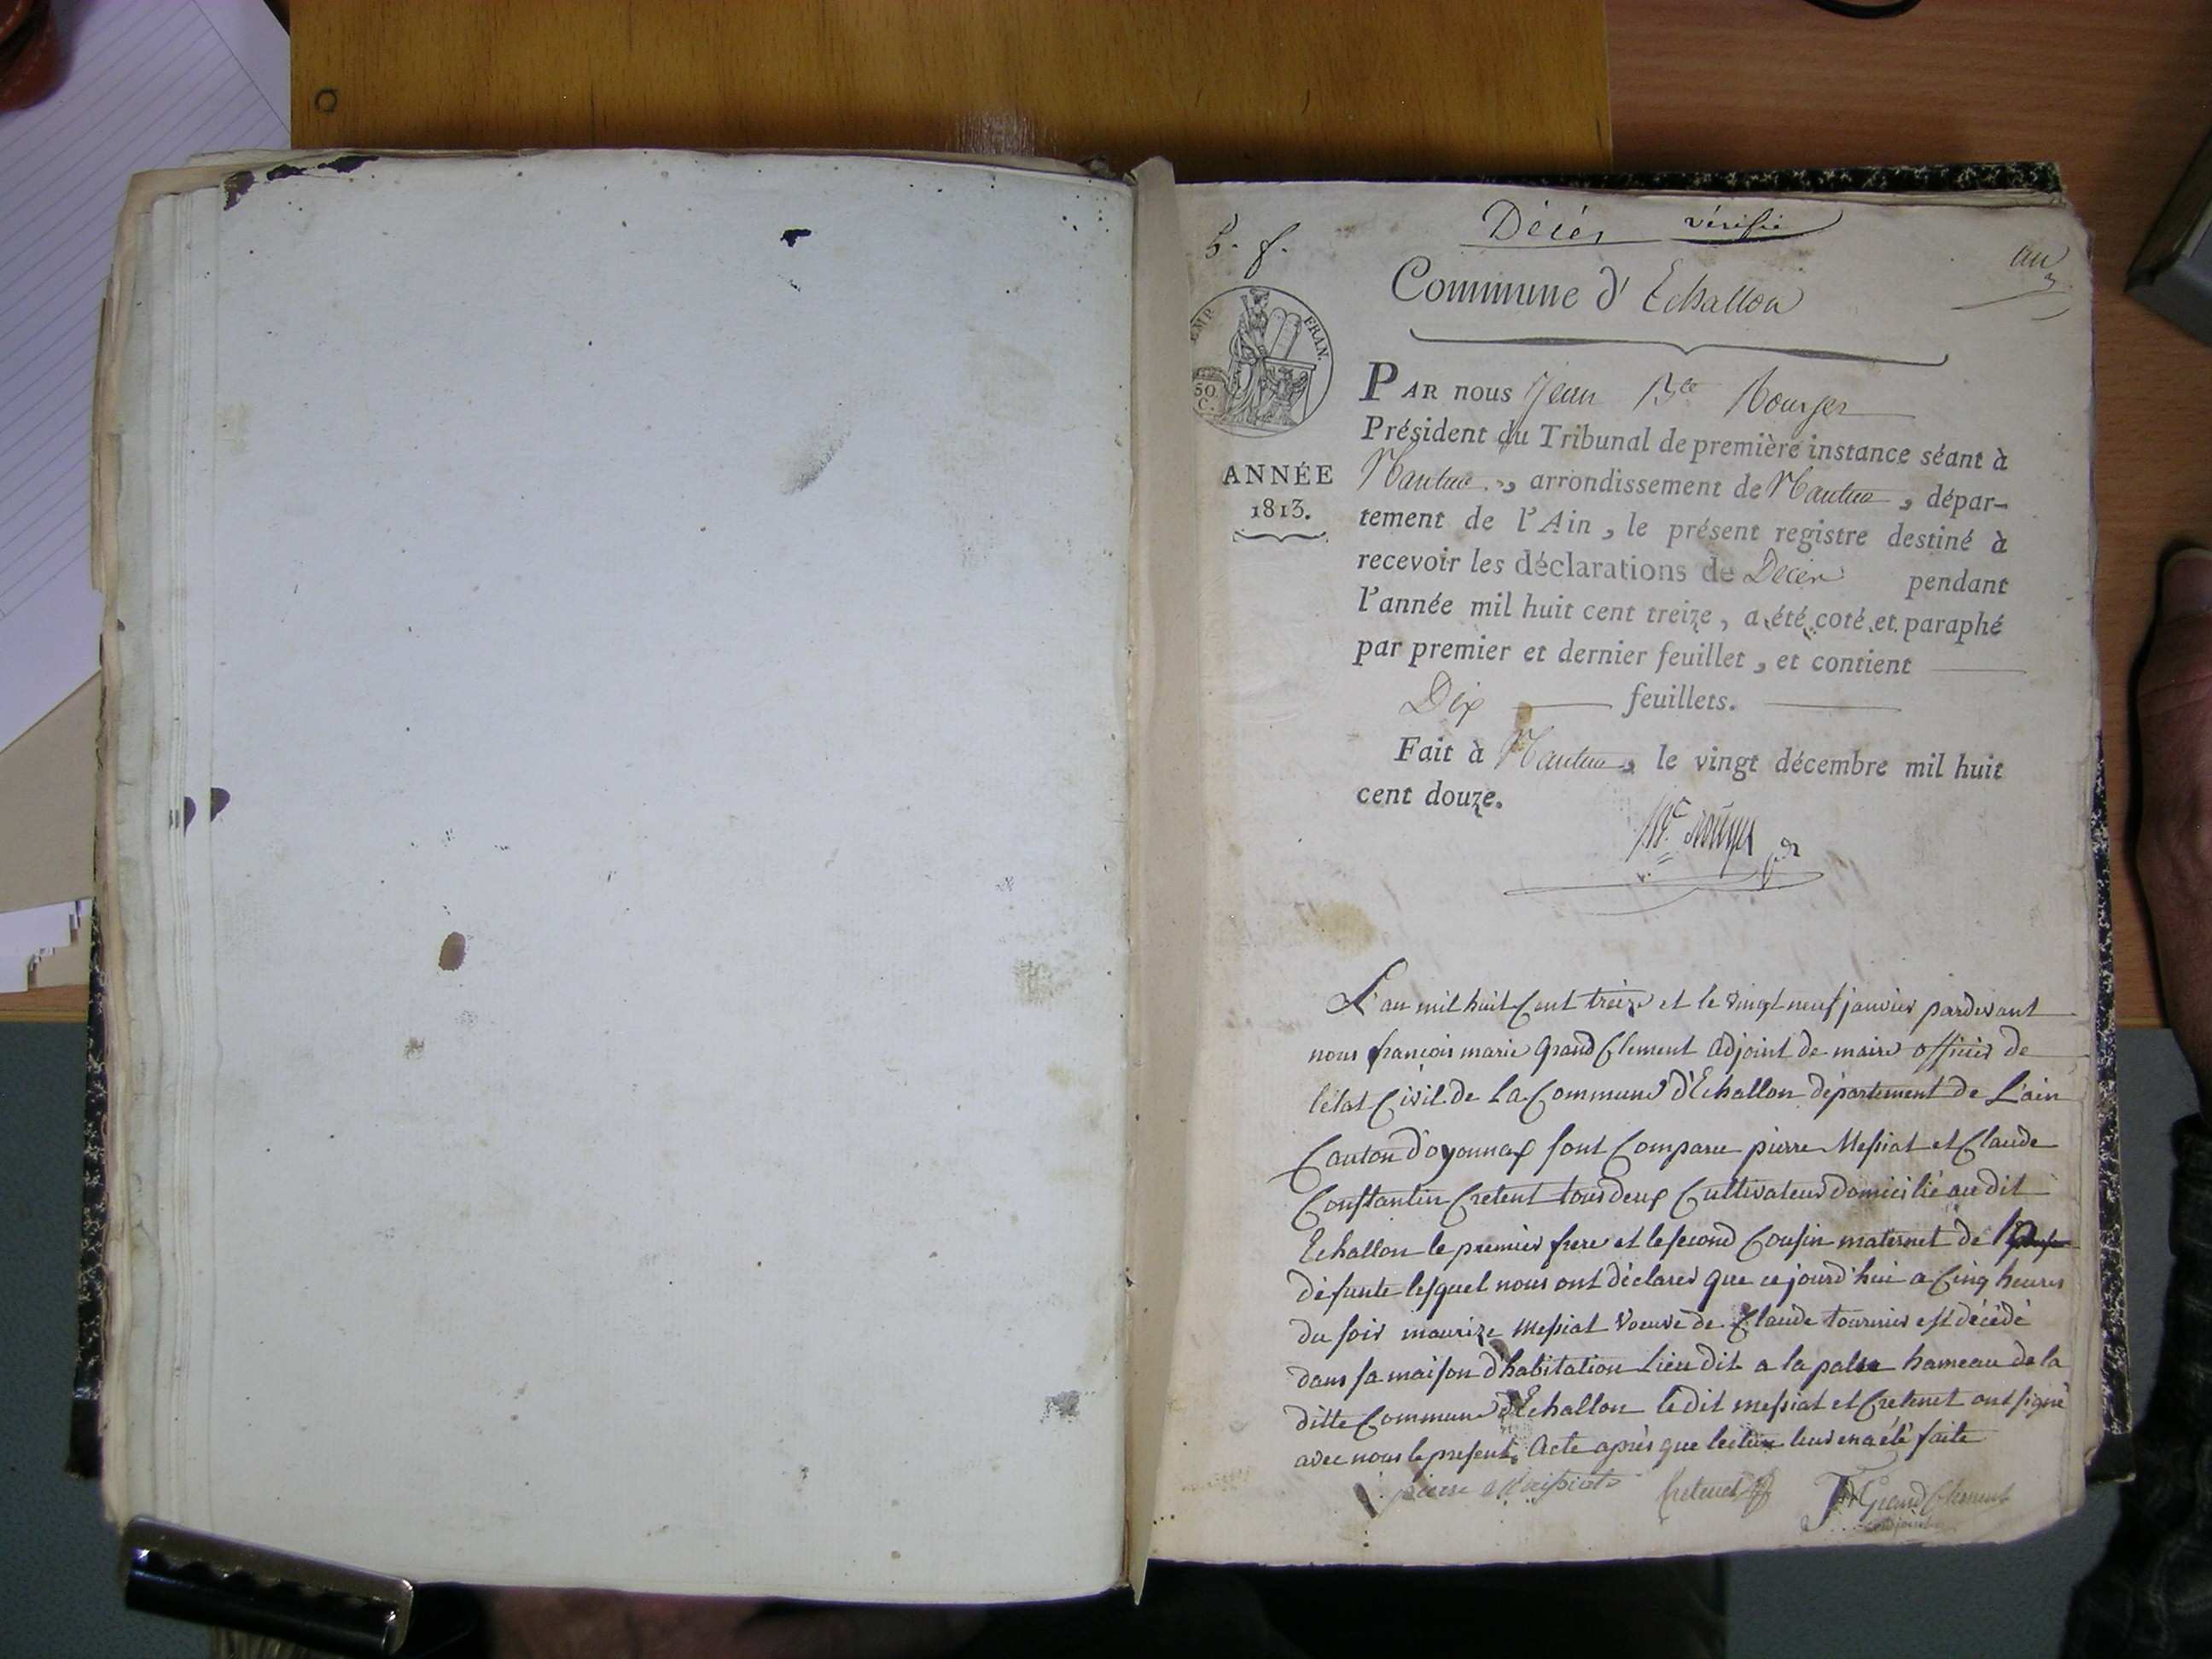 Décès vérifié
5. f.
Commune d' Echallon
EMP. FRAN.
50
C.
ANNÉE
1813.
PAR nous Jean Bte Rouyer
Président du Tribunal de première instance séant à
Nantua, arrondissement de Nantua, dépar-
tement de l'Ain, le présent registre destiné à
recevoir les déclarations de Décès pendant
l'année mil huit cent treize, a été coté et paraphé
par premier et dernier feuillet, et contient
Dix feuillets.
Fait à Nantua, le vingt décembre mil huit
cent douze.
L'an mil huit Cent treize et le vingt neuf janvier pardevant
nous françois marie Grand Clement adjoint de maire officier de
l'état Civil de La Commune d'Echallon département de L'ain
Canton d'oyonnax sont Comparu pierre Messiat et Claude
Constantin Cretenet tous deux Cultivateur domicilié au dit
Echallon le premier frere et le second Cousin maternel de la
défunte lesquel nous ont déclarer que cejourd'hui a Cinq heures
du soir maurize Messiat Voeuve de Claude tournier est décédé
dans sa maison d'habitation Lieu dit a la palse hameau de la
ditte Commune d'Echallon ledit messiat et Cretenet ont signé
avec nous le present Acte après que lecture leur en a été faite
pierre Messiat Cretenet fr Grand Clement
adjoint